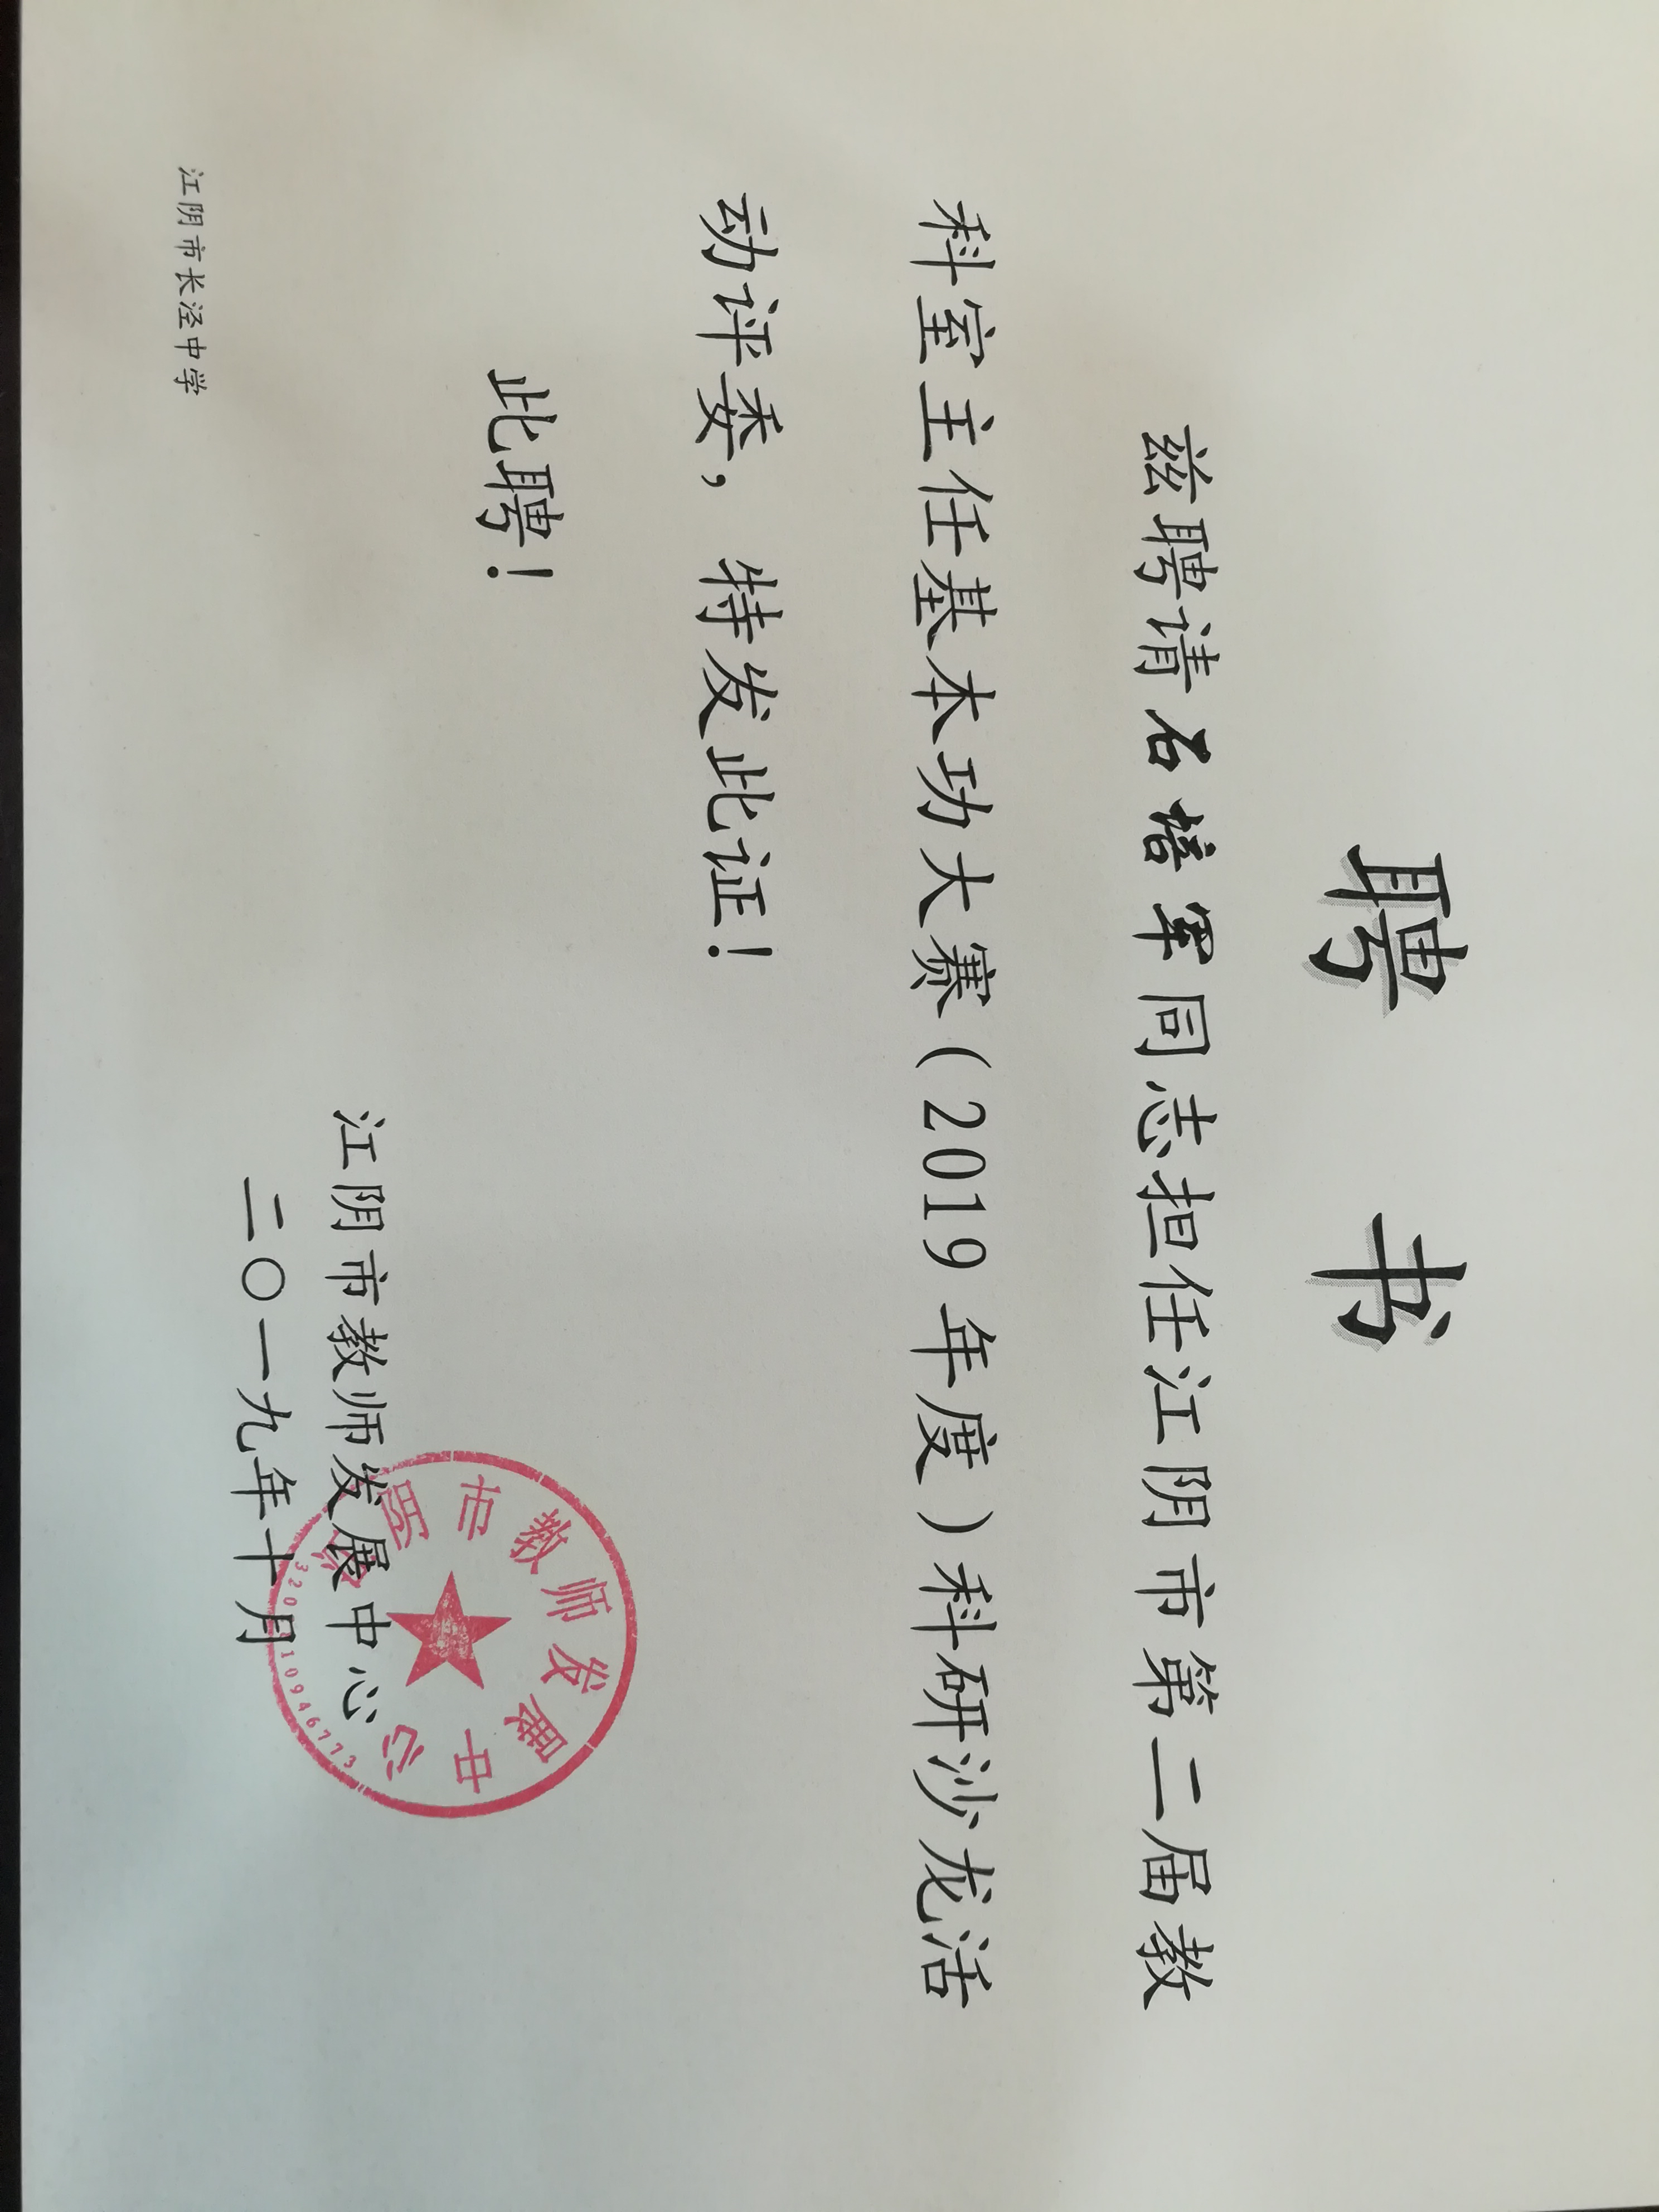 聘 书
兹聘请石培军同志担任江阴市第二届教
科室主任基本功大赛（2019年度）科研沙龙活
动评委，特发此证！
此聘！
江阴市教师发展中心
二〇一九年十月
江阴市教师发展中心
江阴市长泾中学